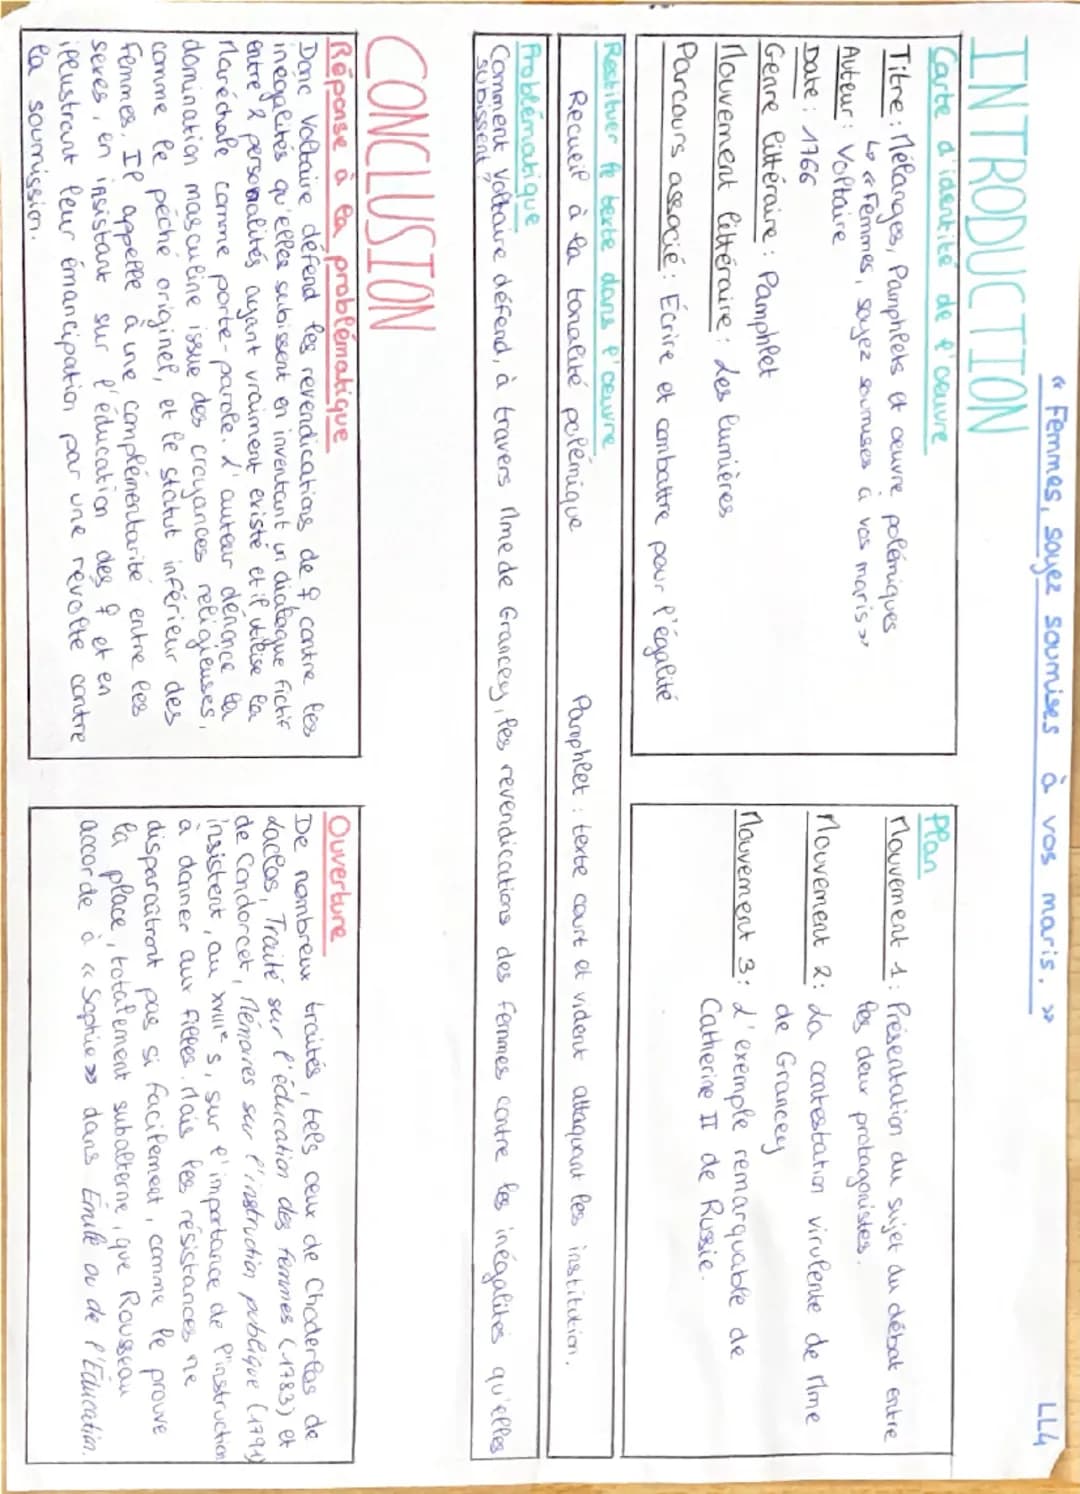 « Femmes, soyez soumises à vos maris. »
LL4
INTRODUCTION
Carte d'identité de l'œuvre
Titre : Mélanges, Pamphlets et œuvre polémiques
↳ « Femmes, soyez soumises à vos maris »
Auteur : Voltaire
Date : 1766
Genre littéraire : Pamphlet
Mouvement littéraire : Les Lumières
Parcours associé : Écrire et combattre pour l'égalité
Plan
Mouvement 1 : Présentation du sujet du débat entre
les deux protagonistes.
Mouvement 2 : La contestation virulente de Mme
de Grancey
Mouvement 3 : L'exemple remarquable de
Catherine II de Russie.
Restituer le texte dans l'œuvre
Recueil à la tonalité polémique
Pamphlet : texte court et vident attaquant les institution.
Problématique
Comment Voltaire défend, à travers Mme de Grancey, les revendications des femmes contre les inégalités qu'elles
subissent ?
CONCLUSION
Réponse à la problématique
Donc Voltaire défend les revendications de ♀ contre les
inégalités qu'elles subissent en inventant un dialogue fictif
entre 2 personnalités ayant vraiment existé et il utilise la
Maréchale comme porte-parole. L'auteur dénonce la
domination masculine issue des croyances religieuses,
comme le péché originel, et le statut inférieur des
femmes. Il appelle à une complémentarité entre les
sexes, en insistant sur l'éducation des ♀ et en
illustrant leur émancipation par une révolte contre
la soumission.
Ouverture
De nombreux traités, tels ceux de Choderlos de
Laclos, Traité sur l'éducation des femmes (1783) et
de Condorcet, Mémoires sur l'instruction publique (1791)
insistent, au XVIIIe s, sur l'importance de l'instruction
à donner aux filles. Mais les résistances ne
disparaîtront pas si facilement, comme le prouve
la place, totalement subalterne, que Rousseau
accorde à « Sophie » dans Émile ou de l'Éducation.